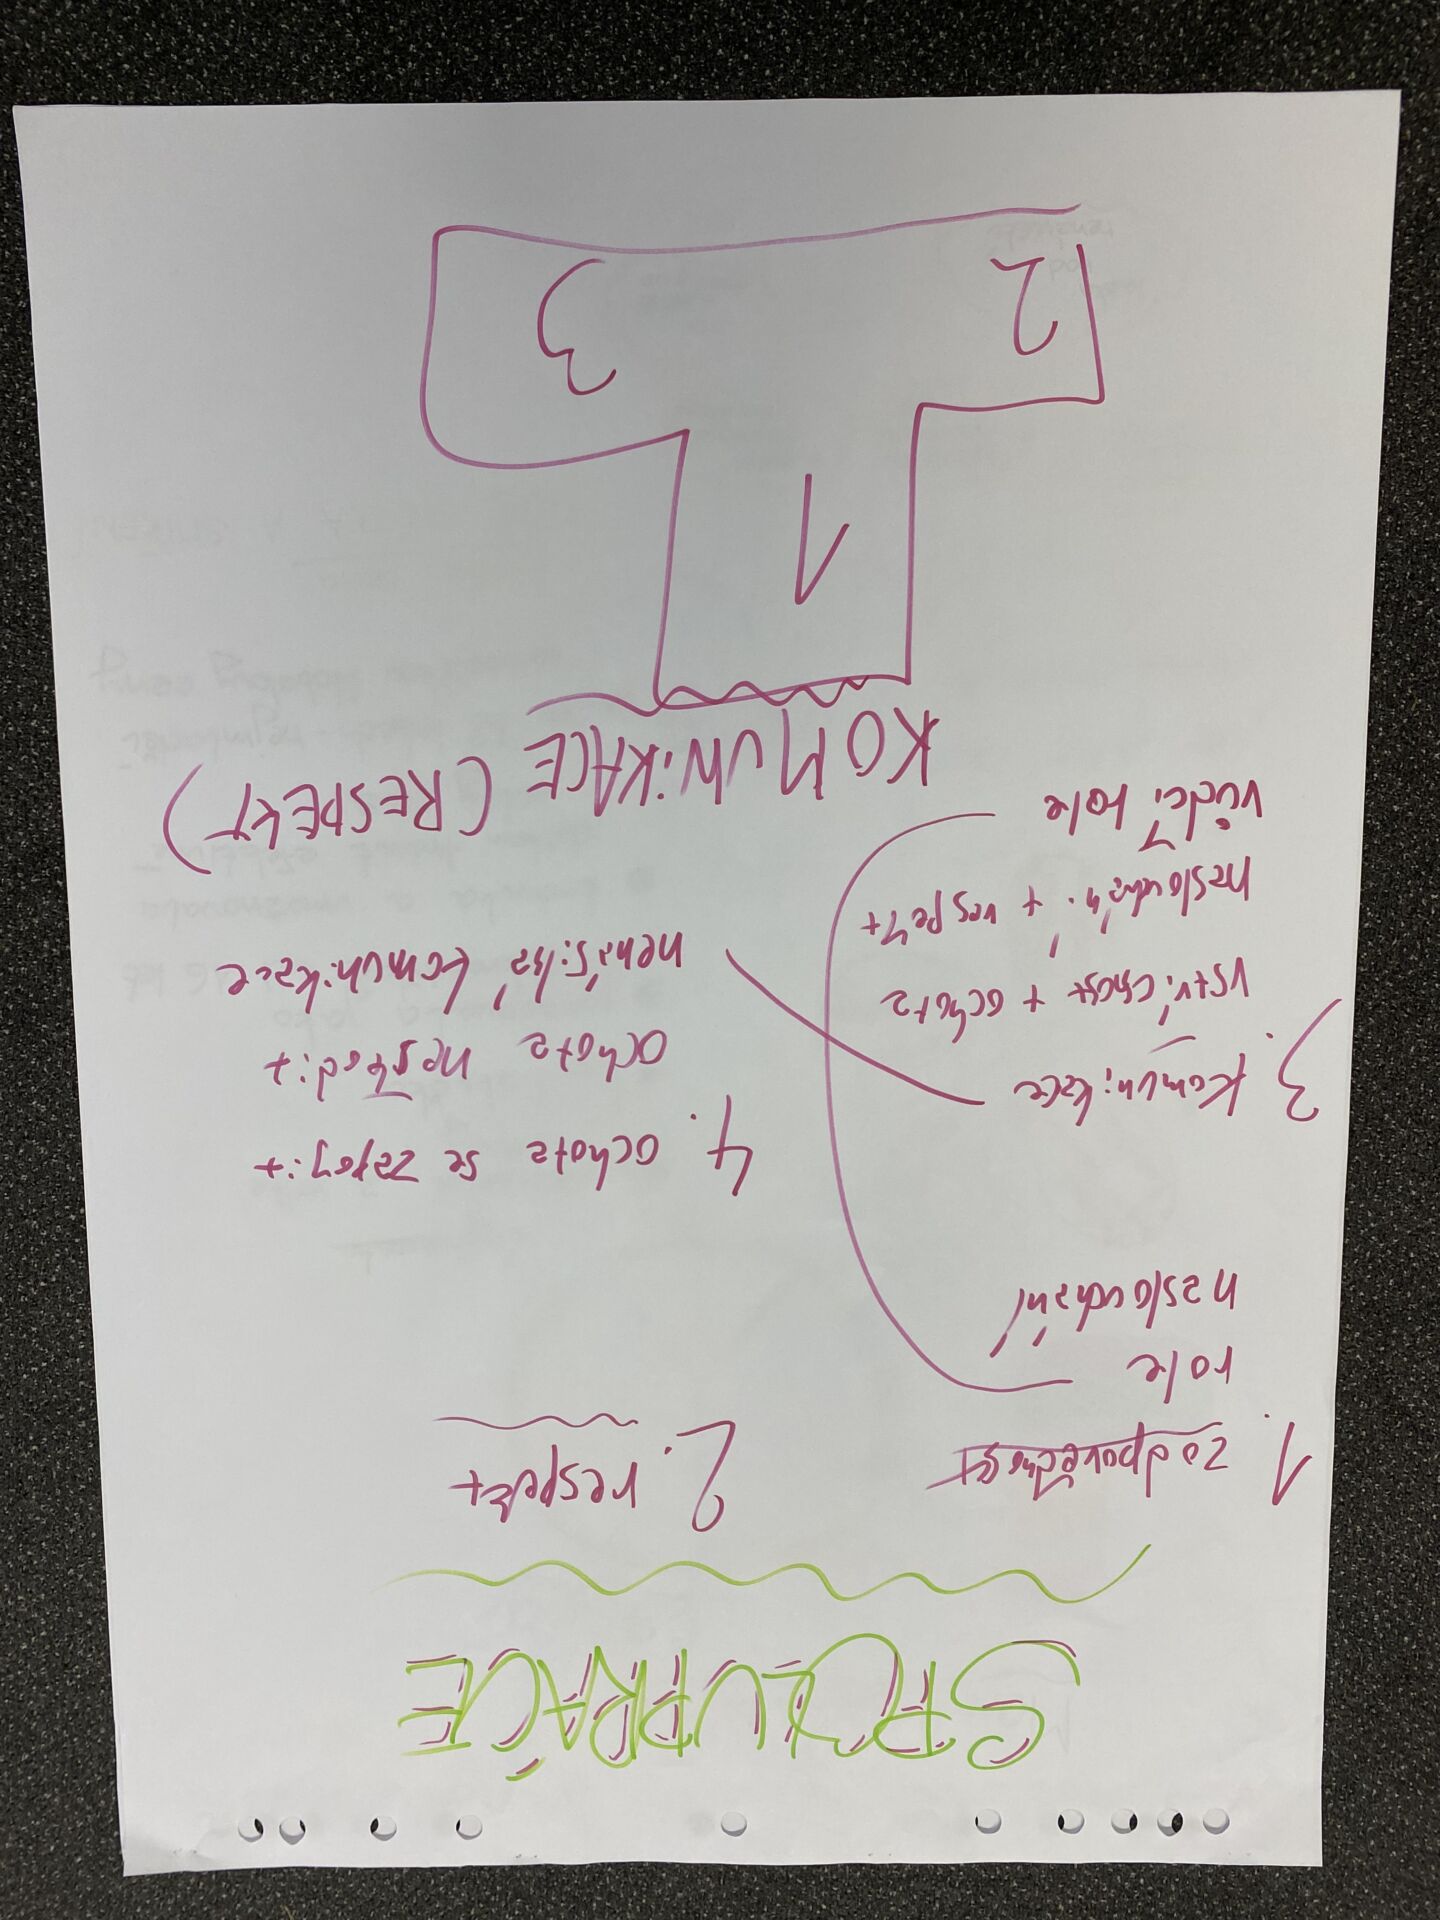 SPOLUPRÁCE
1. zodpovědnost
role
naslouchání
2. respekt
3. komunikace
vstřícnost + ochota
naslouchání + respekt
vůdčí role
4. ochota se zapojit
ochota neškodit
nenásilná komunikace
KOMUNIKACE (RESPEKT)
1
2
3